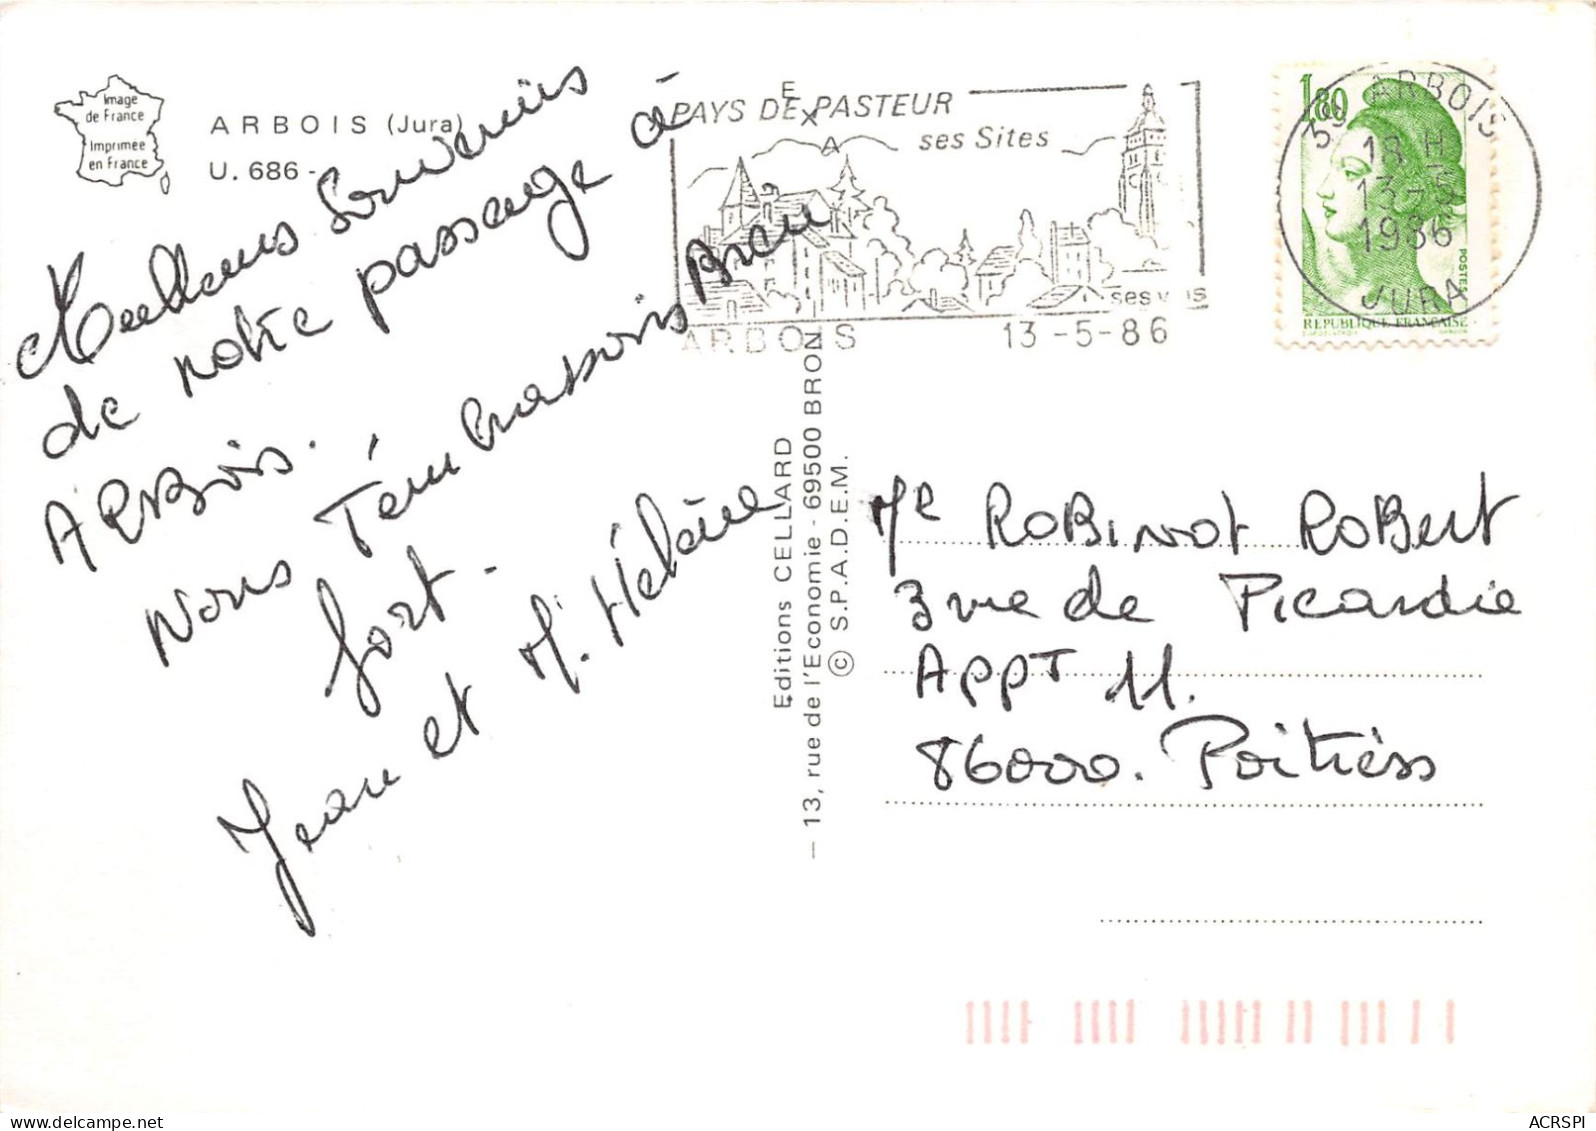 Image
de France
Imprimée
en France
ARBOIS (Jura)
U. 686 -
Meilleurs Souvenirs
de notre passage à
ARBois.
Nous T'embrassons Bien
fort.
Jean et M. Hélène
PAYS DE PASTEUR
ses Sites
ses vins
ARBOIS 13-5-86
39 ARBOIS
18 H
13-5
1986
JURA
1,80
POSTES
REPUBLIQUE FRANÇAISE
Editions CELLARD
– 13, rue de l'Economie - 69500 BRON
© S.P.A.D.E.M.
Mr RoBiNot RoBert
3 rue de Picardie
APPT 11.
86000. Poitiers
ACRSPI